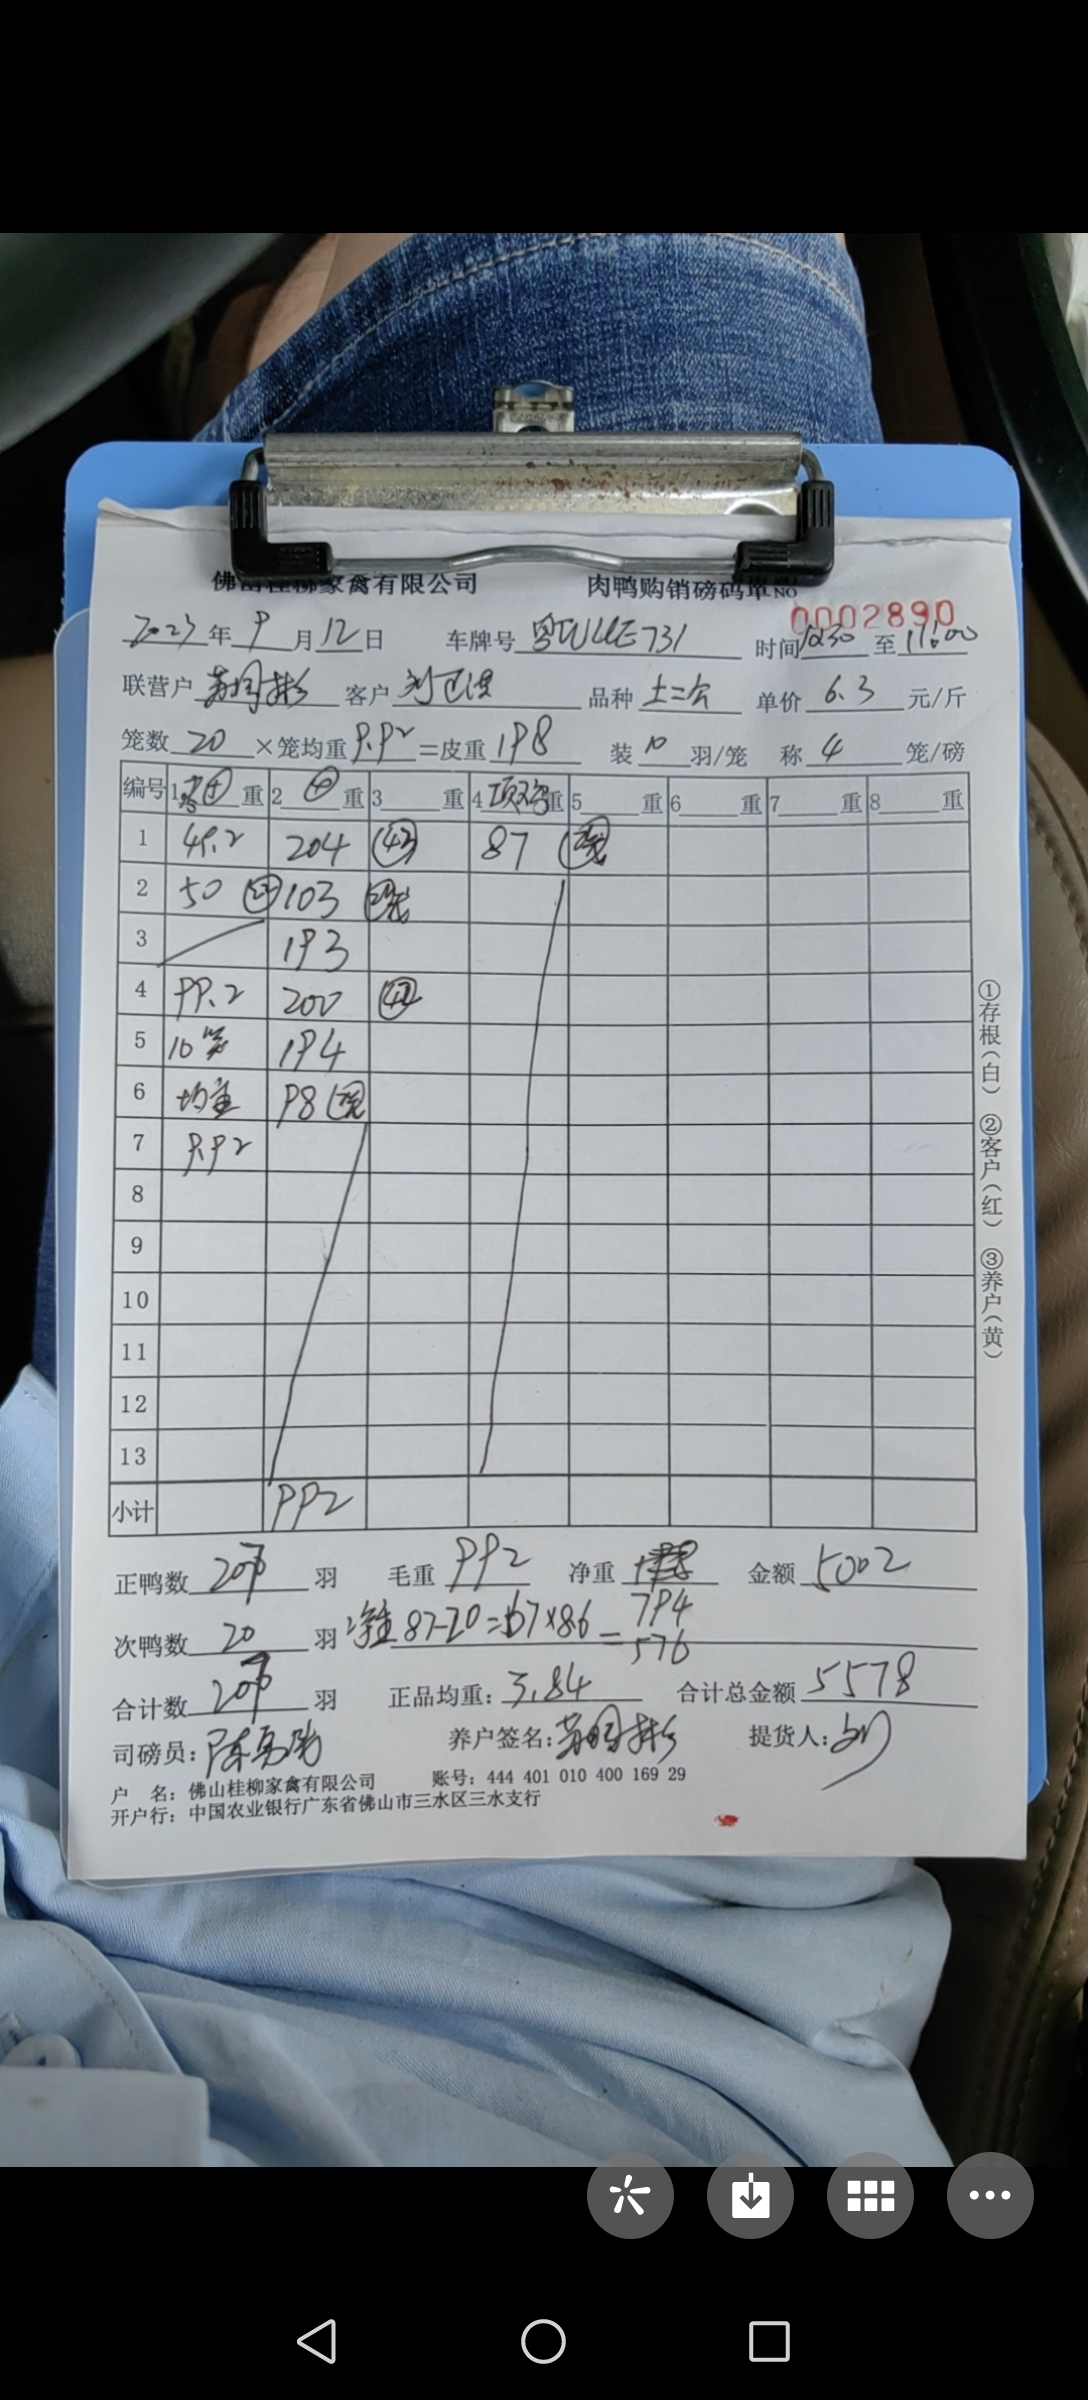 佛山桂柳家禽有限公司 肉鸭购销磅码单 NO 0002890
2023年 9月12日 车牌号 731 时间 10:30 至 11:00
联营户 客户 品种 土二公 单价 6.3 元/斤
笼数 20 ×笼均重 9.92 =皮重 198 装 10 羽/笼 称 4 笼/磅
编号 1 重 2 重 3 重 4 重 5 重 6 重 7 重 8 重
1 49.2 204 43 87
2 50 103
3 193
4 99.2 200 42
5 10笼 194
6 均重 98
7 9.92
8
9
10
11
12
13
小计 992
正鸭数 207 羽 毛重 992 净重 794 金额 5002
次鸭数 20 羽 净重 87-20=67×8.6=576
合计数 羽 正品均重: 3.84 合计总金额 5578
司磅员: 养户签名: 提货人:
户 名: 佛山桂柳家禽有限公司 账号: 444 401 010 400 169 29
开户行: 中国农业银行广东省佛山市三水区三水支行
①存根(白) ②客户(红) ③养户(黄)